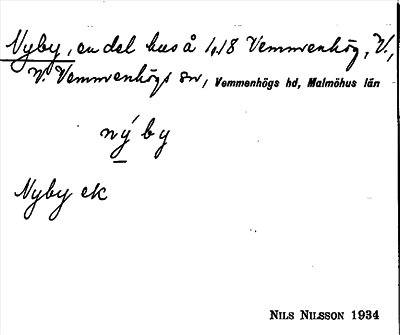 Nyby, en del hus å 1,18 Vemmenhög, V.,
V. Vemmenhögs sn, Vemmenhögs hd, Malmöhus län
nýby
Nyby ek
NILS NILSSON 1934